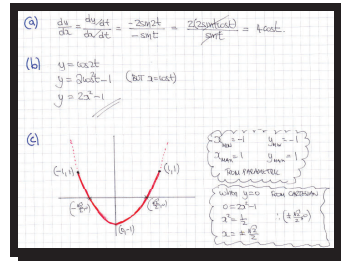 (a) dy/dx = dy/dt / dx/dt = -2sin2t / -sint = 2(2sintcost) / sint = 4cost.
(b) y = cos2t
y = 2cos²t - 1 (BUT x = cost)
y = 2x² - 1
(c)
(-1,1) (1,1)
(-√2/2,0) (√2/2,0)
(0,-1)
x MIN = -1 y MIN = -1
x MAX = 1 y MAX = 1
FROM PARAMETRIC
WHEN y=0 FROM CARTESIAN
0 = 2x² - 1
x² = 1/2 ∴ (±√2/2,0)
x = ± √2/2